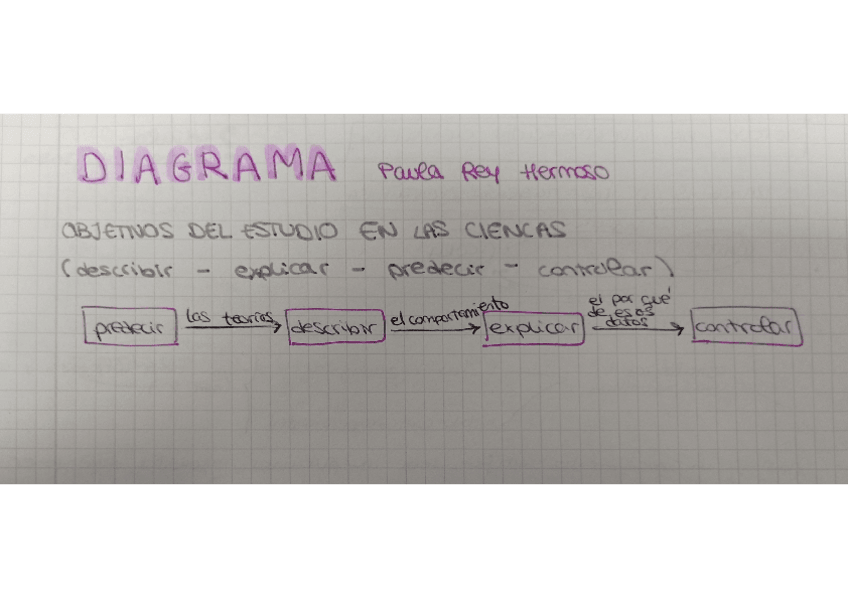 DIAGRAMA Paula Rey Hermoso
OBJETIVOS DEL ESTUDIO EN LAS CIENCAS
(describir - explicar - predecir - controlar)
predecir las teorías describir el comportamiento explicar el por qué de esos datos controlar